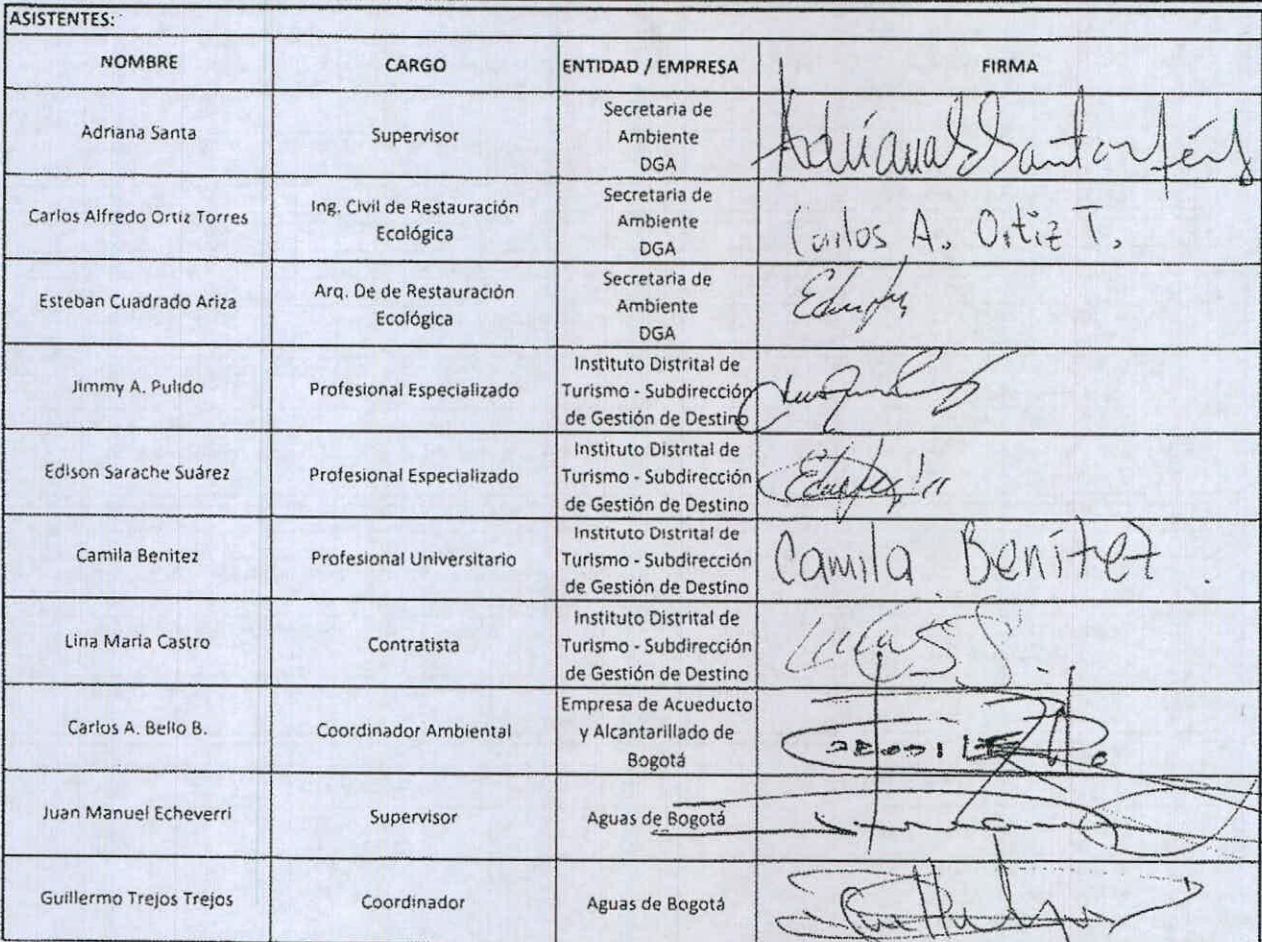 ASISTENTES:
NOMBRE CARGO ENTIDAD / EMPRESA FIRMA
Adriana Santa Supervisor Secretaria de Ambiente DGA
Carlos Alfredo Ortiz Torres Ing. Civil de Restauración Ecológica Secretaria de Ambiente DGA Carlos A. Ortiz T.
Esteban Cuadrado Ariza Arq. De de Restauración Ecológica Secretaria de Ambiente DGA
Jimmy A. Pulido Profesional Especializado Instituto Distrital de Turismo - Subdirección de Gestión de Destino
Edison Sarache Suárez Profesional Especializado Instituto Distrital de Turismo - Subdirección de Gestión de Destino
Camila Benitez Profesional Universitario Instituto Distrital de Turismo - Subdirección de Gestión de Destino Camila Benítez
Lina Maria Castro Contratista Instituto Distrital de Turismo - Subdirección de Gestión de Destino
Carlos A. Bello B. Coordinador Ambiental Empresa de Acueducto y Alcantarillado de Bogotá
Juan Manuel Echeverri Supervisor Aguas de Bogotá
Guillermo Trejos Trejos Coordinador Aguas de Bogotá